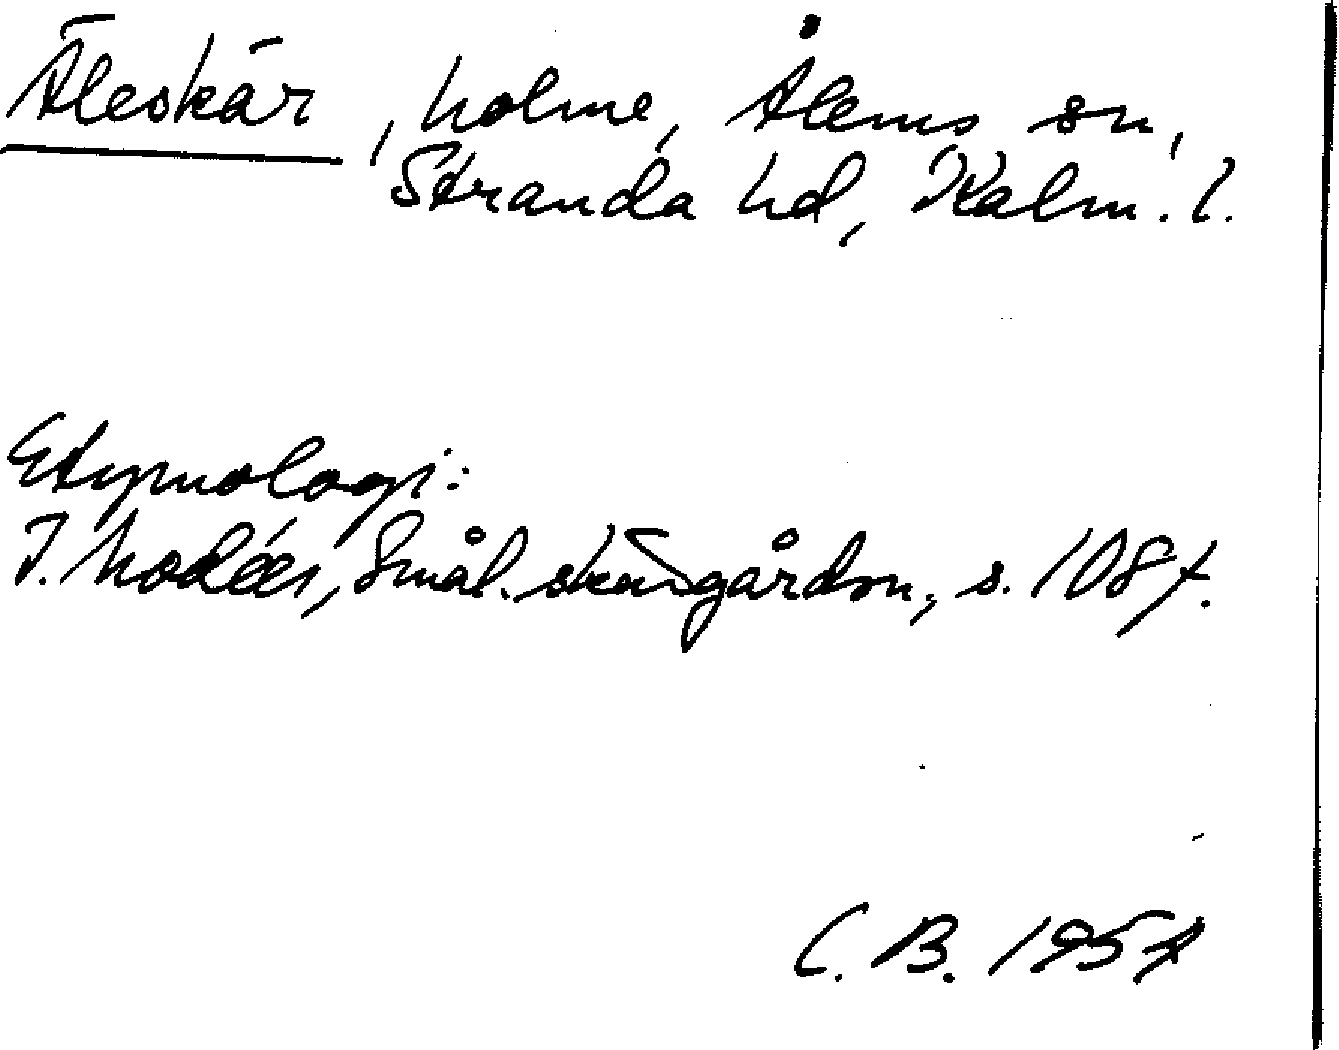 Äleskär, holme, Ålems sn,
Stranda hd, Kalm. l.
Etymologi:
I. Modéer, Smål. skärgårdsn., s. 108 f.
C. B. 1957